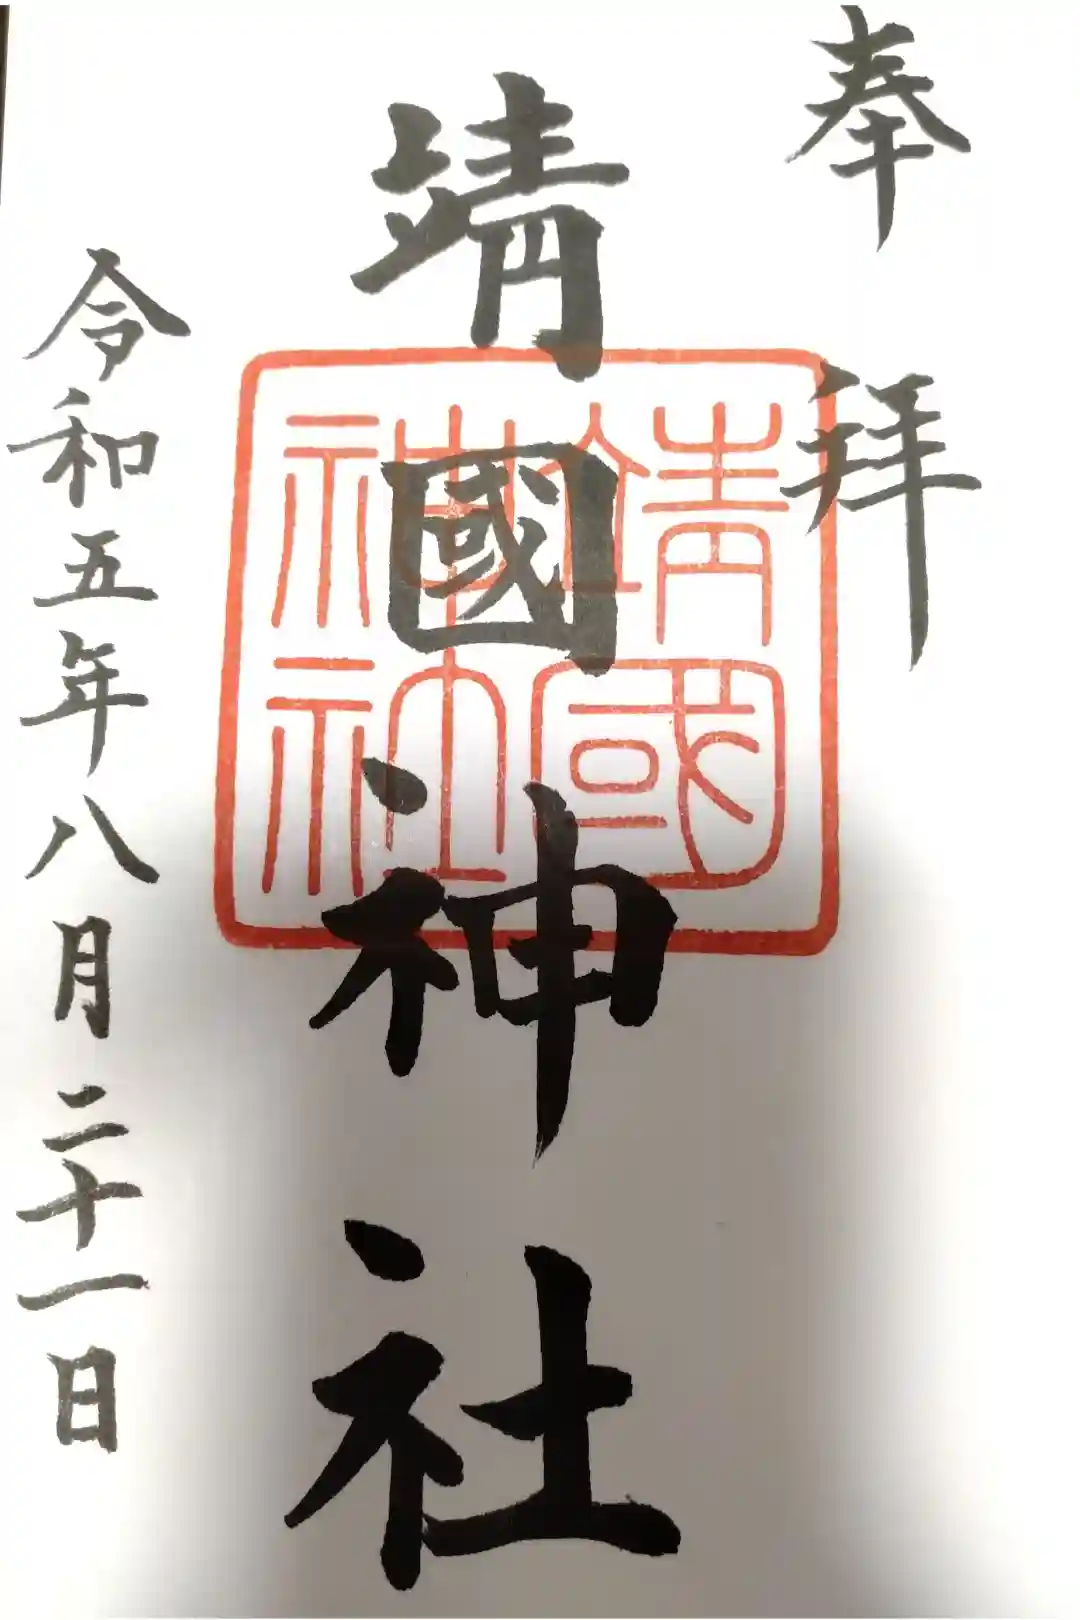 奉拝
靖國神社
靖國
神社
令和五年八月二十一日